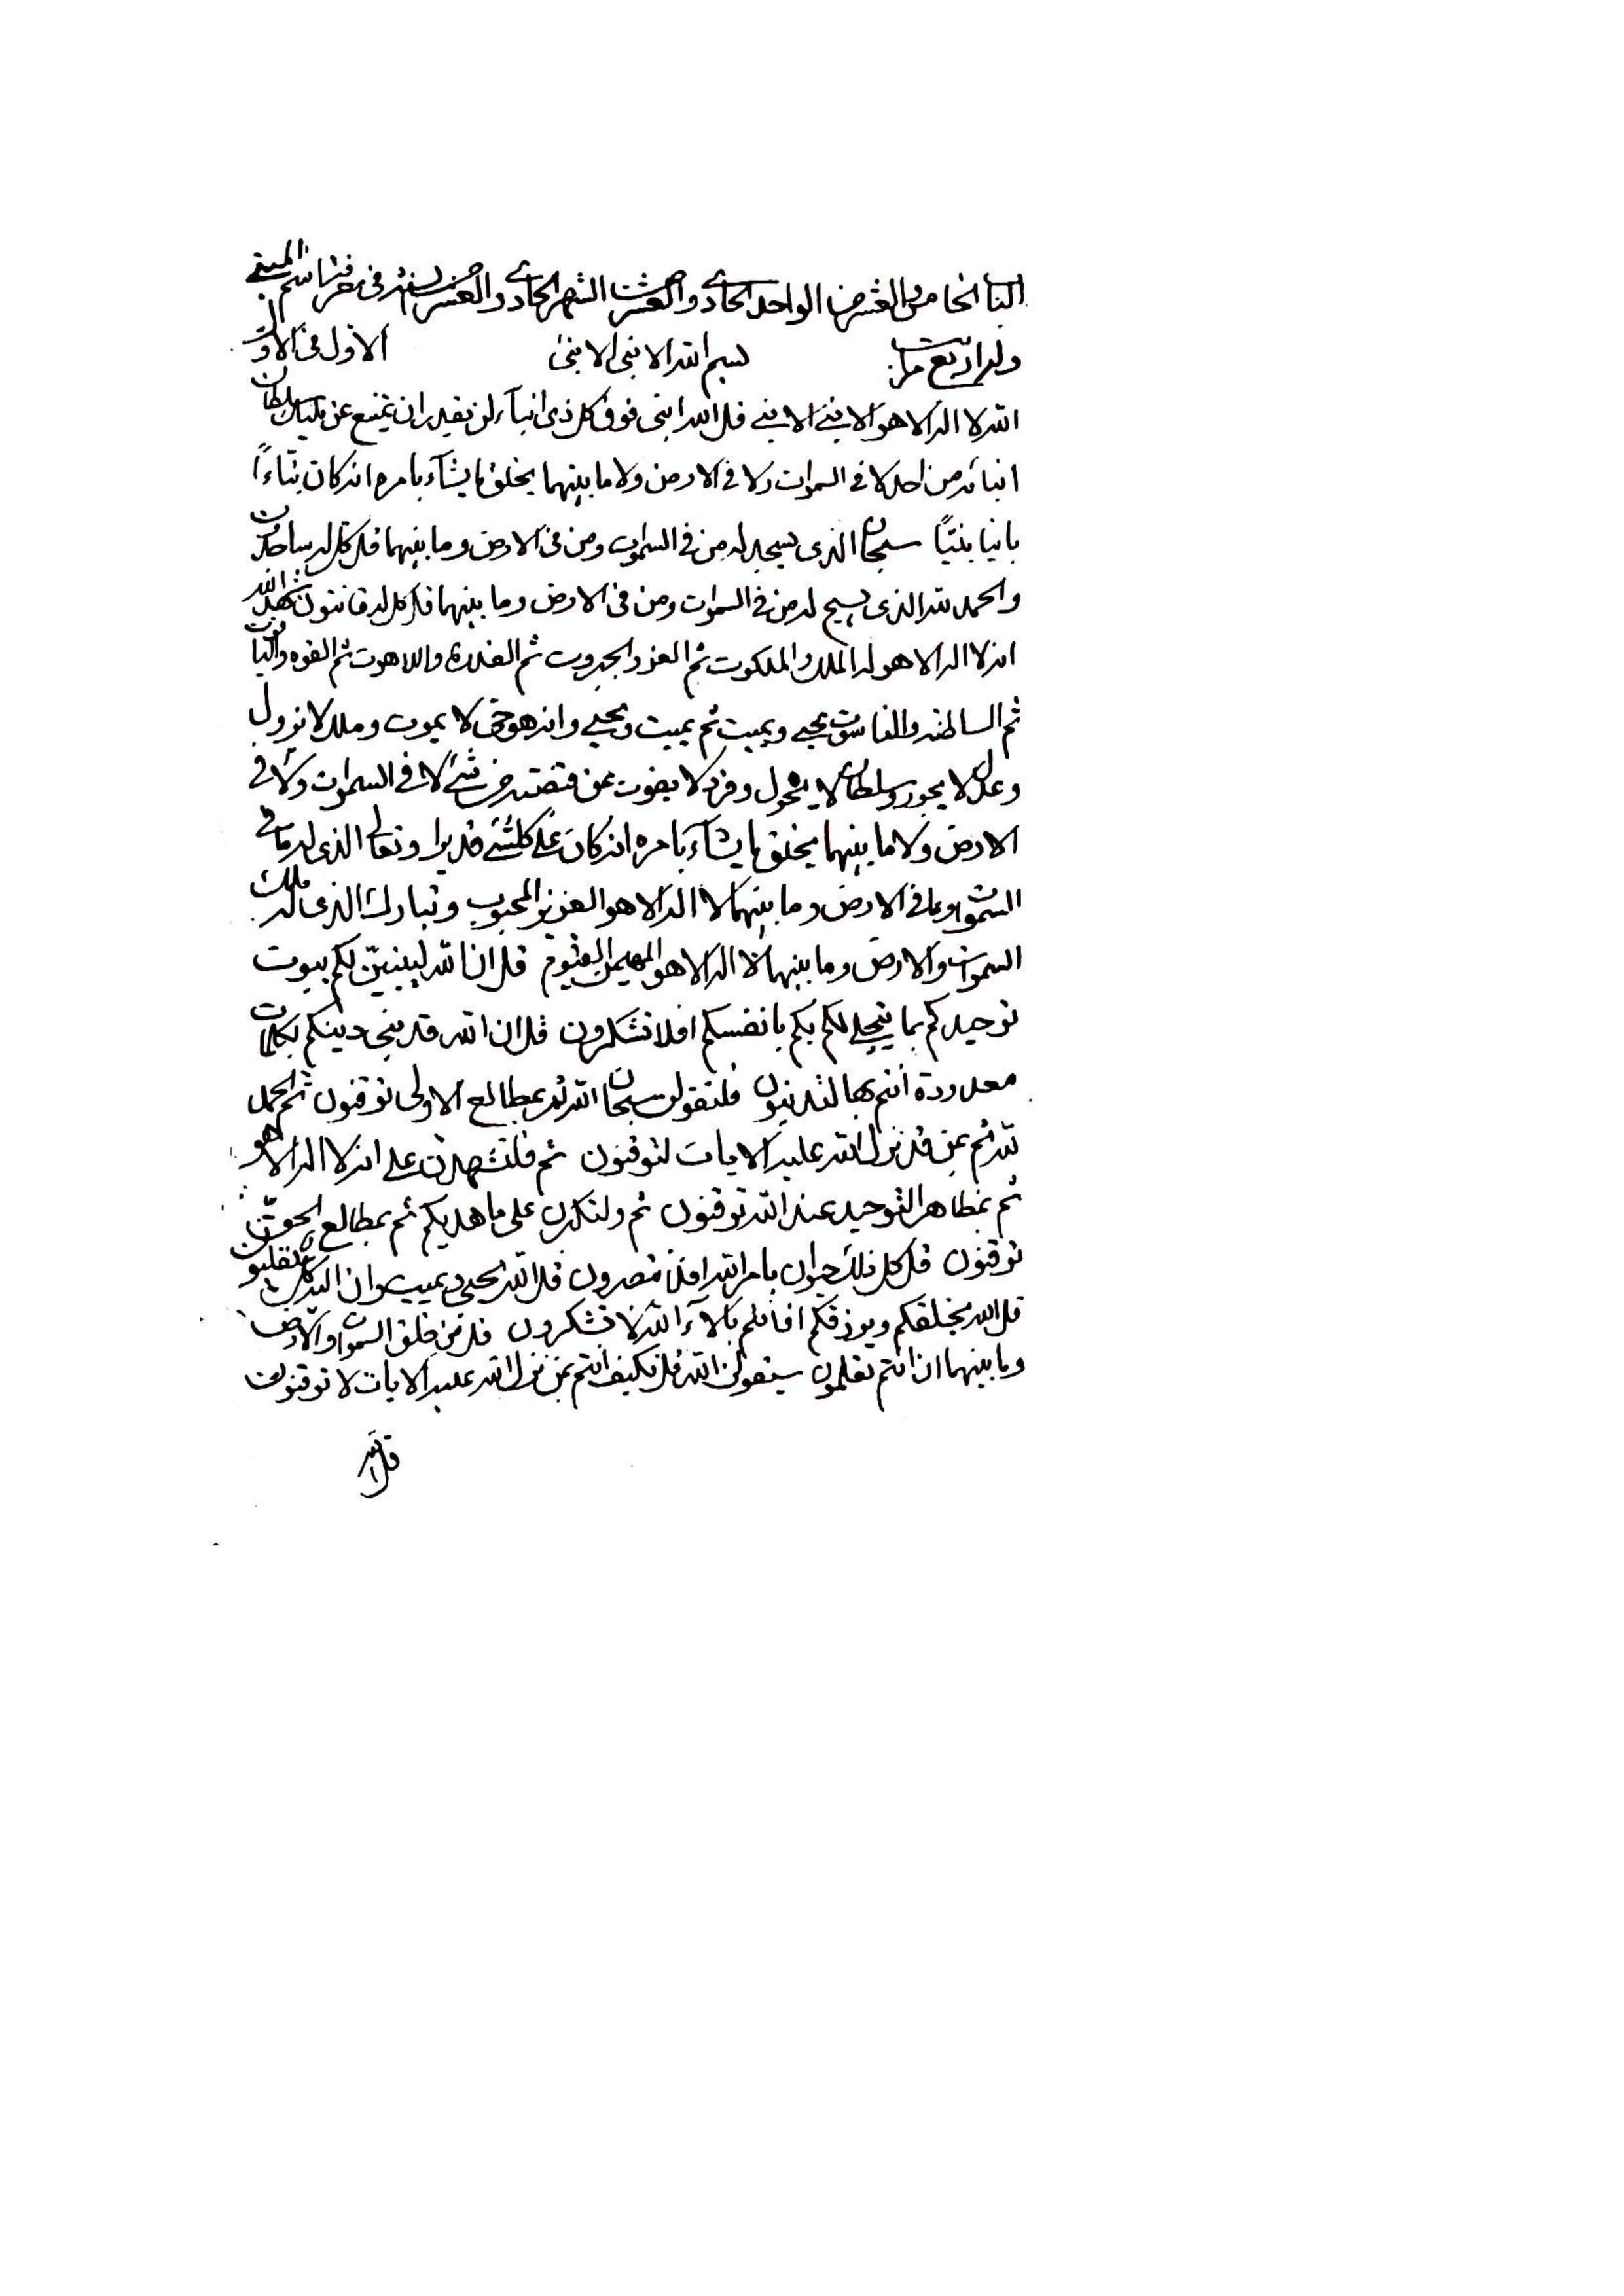 الباب الخامس والعشر من الواحد الحادي والعشر من الشهر الحادي والعشر من السنة في معرفة اسم المبني
وله اربع مراتب بسم الله الابنى الابنى الاول في الاول
الله لا اله الا هو الابنى الابنى قل الله ابنى فوق كل ذي ابناء لن يقدر ان يمتنع عن مليك سلطان
ابنائه من احد لا في السموات ولا في الارض ولا ما بينهما يخلق ما يشاء بامره انه كان بناءً
بانيا بنيًا سبحان الذي يسجد له من في السموات ومن في الارض وما بينهما قل كل له ساجدون
والحمد لله الذي يسبح له من في السموات ومن في الارض وما بينهما قل كل له قانتون شهد الله
انه لا اله الا هو له الملك والملكوت ثم العز والجبروت ثم القدرة واللاهوت ثم القوة والياقوت
ثم السلطنة والناسوت يحيي ويميت ثم يميت ويحيي وانه هو حي لا يموت وملك لا يزول
وعدل لا يجور وسلطان لا يحول وفرد لا يفوت عن قبضته من شئ لا في السموات ولا في
الارض ولا ما بينهما يخلق ما يشاء بامره انه كان على كلشئ قديرا وتعالى الذي له ما في
السموات وما في الارض وما بينهما لا اله الا هو العزيز المحبوب وتبارك الذي له ملك
السموات والارض وما بينهما لا اله الا هو المهيمن القيوم قل ان الله ليبنين لكم بيوت
توحيدكم بما يتجلى لكم بكم بانفسكم افلا تشكرون قل ان الله قد بنى دينكم بكلمات
معدودة انتم بها لتدينون فلتقولن سبحان الله ثم بمطالع الاولى توقنون ثم الحمد
لله ثم بمن قد نزل الله عليه الايات لتوقنون ثم فلتشهدن على انه لا اله الا هو
ثم بمظاهر التوحيد عند الله توقنون ثم ولتكبرن على ما هديكم ثم بمطالع الحق
توقنون قل كل ذلك حيوان بامر الله افلا تبصرون قل الله يحيي ويميت وان اليه كل لينقلبون
قل الله يخلقكم ويرزقكم افانتم بالاء الله لا تشكرون قل من خلق السموات والارض
وما بينهما ان انتم تعلمون سيقولن الله قل فكيف انتم بمن نزل الله عليه الايات لا توقنون
قل الله